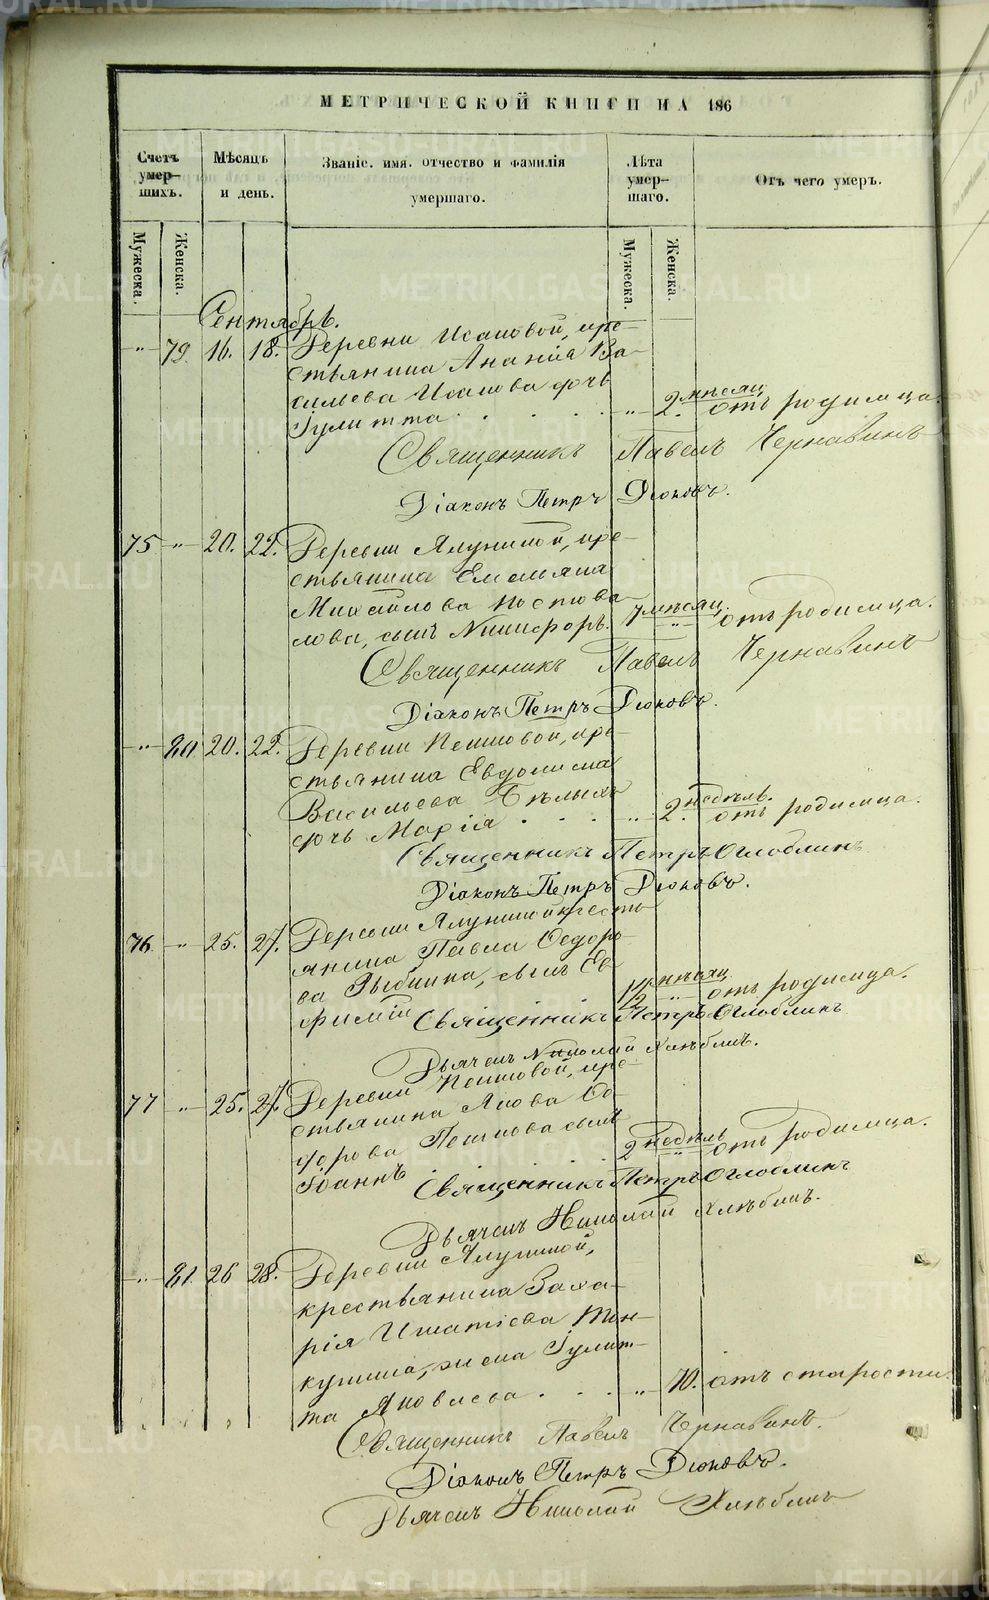 МЕТРИЧЕСКОЙ КНИГИ НА 186
Счетъ умер-шихъ.
Мѣсяцъ и день.
Званіе, имя, отчество и фамилія умершаго.
Лѣта умер-шаго.
Отъ чего умеръ.
Мужеска. Женска. Мужеска. Женска.
Сентябрь.
„ 79. 16. 18. Деревни Исаковой, кре-
стьянина Ананія Ва-
сильева Исакова дочь
Іулитта . . . . „ 2. мѣсяц. отъ родимца.
Священникъ Павелъ Чернавинъ
Діаконъ Петръ Дюковъ.
75 „ 20. 22. Деревни Ялуниной, кре-
стьянина Емельяна
Михайлова Костова-
лова, сынъ Никифоръ. 7 мѣсяц. „ отъ родимца.
Священникъ Павелъ Чернавинъ
Діаконъ Петръ Дюковъ.
„ 80 20. 22. Деревни Кешовой, кре-
стьянина Евдокима
Васильева Бѣлыхъ
дочь Марія . . . . „ 2. недѣль. отъ родимца.
Священникъ Петръ Оглоблинъ
Діаконъ Петръ Дюковъ.
76 „ 25. 27. Деревни Ялуниной кресть-
янина Павла Ѳедоро-
ва Рыбкина, сынъ Ев-
фимій 1/2 мѣсяц „ отъ родимца.
Священникъ Петръ Оглоблинъ
Дьячекъ Николай Хлѣбинъ.
77 „ 25. 27. Деревни Кешовой, кре-
стьянина Якова Ѳе-
дорова сынъ
Іоаннъ . . . . 2 недѣль „ отъ родимца.
Священникъ Петръ Оглоблинъ
Дьячекъ Николай Хлѣбинъ.
„ 81. 26 28. Деревни Ялуниной,
крестьянина Заха-
рія Игнатіева
жена Іулит-
та Яковлева . . . „ 70. отъ старости.
Священникъ Павелъ Чернавинъ.
Діаконъ Петръ Дюковъ.
Дьячекъ Николай Хлѣбинъ
METRIKI.GASO-URAL.RU